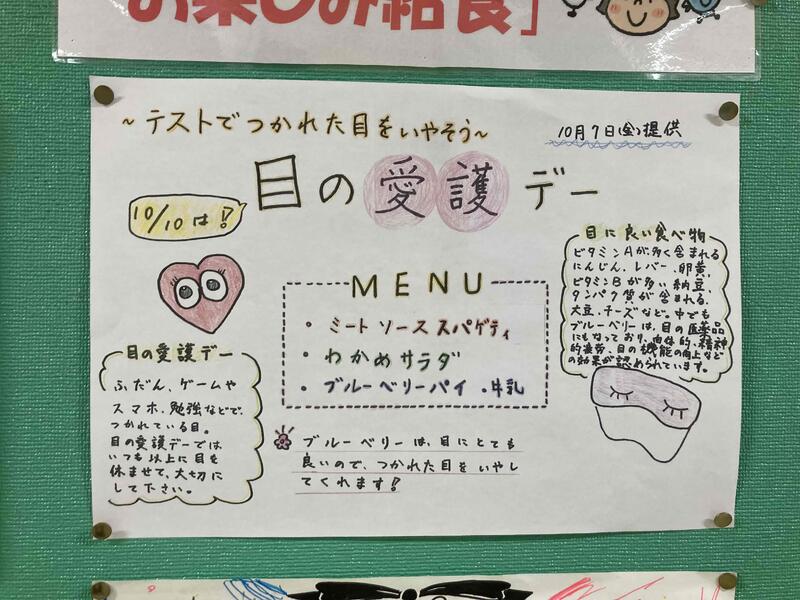 お楽しみ給食」
～テストでつかれた目をいやそう～
10月7日(金)提供
目の愛護デー
10/10は!
MENU
・ミートソーススパゲティ
・わかめサラダ
・ブルーベリーパイ ・牛乳
目の愛護デー
ふだん、ゲームや
スマホ、勉強などで、
つかれている目。
目の愛護デーでは
いつも以上に目を
休ませて、大切に
して下さい。
ブルーベリーは、目にとても
良いので、つかれた目をいやし
てくれます!
目に良い食べ物
ビタミンAが多く含まれる
にんじん、レバー、卵黄、
ビタミンBが多い納豆、
タンパク質が含まれる、
大豆、チーズなど。中でも
ブルーベリーは、目の医薬品
にもなっており、肉体的、精神
的疲労、目の機能の向上など
の効果が認められています。